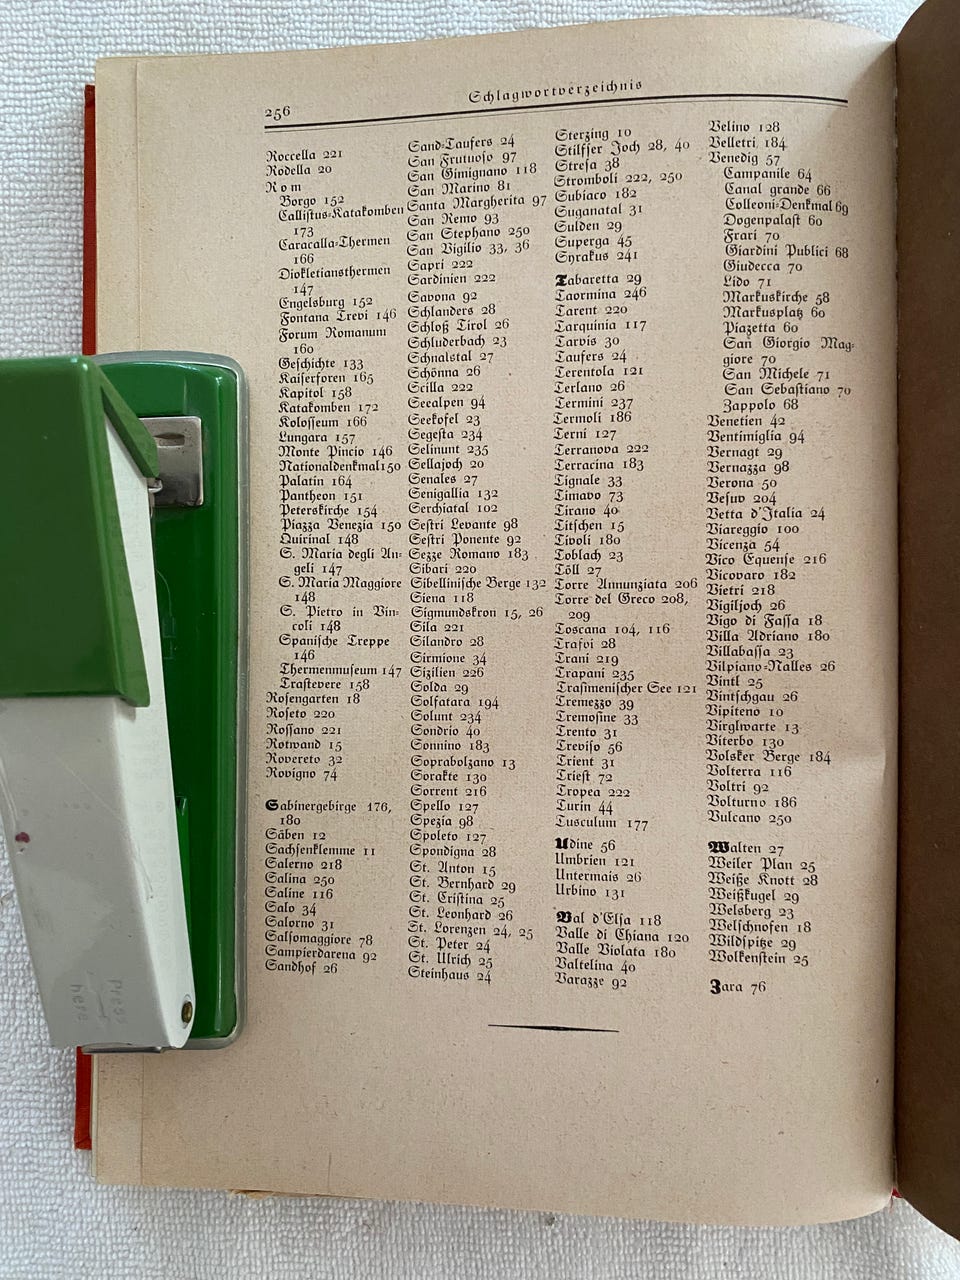 256
Schlagwortverzeichnis
Roccella 221
Rodella 20
Rom
Borgo 152
Callistus-Katakomben
173
Caracalla-Thermen
166
Diokletiansthermen
147
Engelsburg 152
Fontana Trevi 146
Forum Romanum
160
Geschichte 133
Kaiserforen 165
Kapitol 158
Katakomben 172
Kolosseum 166
Lungara 157
Monte Pincio 146
Nationaldenkmal 150
Palatin 164
Pantheon 151
Peterskirche 154
Piazza Venezia 150
Quirinal 148
S. Maria degli An-
geli 147
S. Maria Maggiore
148
S. Pietro in Vin-
coli 148
Spanische Treppe
146
Thermenmuseum 147
Trastevere 158
Rosengarten 18
Roseto 220
Rossano 221
Rotwand 15
Rovereto 32
Rovigno 74
Sabinergebirge 176,
180
Säben 12
Sachsenklemme 11
Salerno 218
Salina 250
Saline 116
Salo 34
Salorno 31
Salsomaggiore 78
Sampierdarena 92
Sandhof 26
Sand-Taufers 24
San Frutuoso 97
San Gimignano 118
San Marino 81
Santa Margherita 97
San Remo 93
San Stephano 250
San Vigilio 33, 36
Sapri 222
Sardinien 222
Savona 92
Schlanders 28
Schloß Tirol 26
Schluderbach 23
Schnalstal 27
Schönna 26
Scilla 222
Seealpen 94
Seekofel 23
Segesta 234
Selinunt 235
Sellajoch 20
Senales 27
Senigallia 132
Serchiatal 102
Sestri Levante 98
Sestri Ponente 92
Sezze Romano 183
Sibari 220
Sibellinische Berge 132
Siena 118
Sigmundskron 15, 26
Sila 221
Silandro 28
Sirmione 34
Sizilien 226
Solda 29
Solfatara 194
Solunt 234
Sondrio 40
Sonnino 183
Soprabolzano 13
Sorakte 130
Sorrent 216
Spello 127
Spezia 98
Spoleto 127
Spondigna 28
St. Anton 15
St. Bernhard 29
St. Cristina 25
St. Leonhard 26
St. Lorenzen 24, 25
St. Peter 24
St. Ulrich 25
Steinhaus 24
Sterzing 10
Stilfser Joch 28, 40
Stresa 38
Stromboli 222, 250
Subiaco 182
Suganatal 31
Sulden 29
Superga 45
Syrakus 241
Tabaretta 29
Taormina 246
Tarent 220
Tarquinia 117
Tarvis 30
Taufers 24
Terentola 121
Terlano 26
Termini 237
Termoli 186
Terni 127
Terranova 222
Terracina 183
Tignale 33
Timavo 73
Tirano 40
Titschen 15
Tivoli 180
Toblach 23
Töll 27
Torre Annunziata 206
Torre del Greco 208,
209
Toscana 104, 116
Trafoi 28
Trani 219
Trapani 235
Trasimenischer See 121
Tremezzo 39
Tremosine 33
Trento 31
Treviso 56
Trient 31
Triest 72
Tropea 222
Turin 44
Tusculum 177
Udine 56
Umbrien 121
Untermais 26
Urbino 131
Val d'Elsa 118
Valle di Chiana 120
Valle Violata 180
Valtelina 40
Varazze 92
Velino 128
Velletri 184
Venedig 57
Campanile 64
Canal grande 66
Colleoni-Denkmal 69
Dogenpalast 60
Frari 70
Giardini Publici 68
Giudecca 70
Lido 71
Markuskirche 58
Markusplatz 60
Piazetta 60
San Giorgio Mag-
giore 70
San Michele 71
San Sebastiano 70
Zappolo 68
Venetien 42
Ventimiglia 94
Vernagt 29
Vernazza 98
Verona 50
Vesuv 204
Vetta d'Italia 24
Viareggio 100
Vicenza 54
Vico Equense 216
Vicovaro 182
Vietri 218
Vigiljoch 26
Vigo di Fassa 18
Villa Adriano 180
Villabassa 23
Vilpiano-Nalles 26
Vintl 25
Vintschgau 26
Vipiteno 10
Virglwarte 13
Viterbo 130
Volsker Berge 184
Volterra 116
Voltri 92
Volturno 186
Vulcano 250
Walten 27
Weiler Plan 25
Weiße Knott 28
Weißkugel 29
Welsberg 23
Welschnofen 18
Wildspitze 29
Wolkenstein 25
Zara 76
Press
here